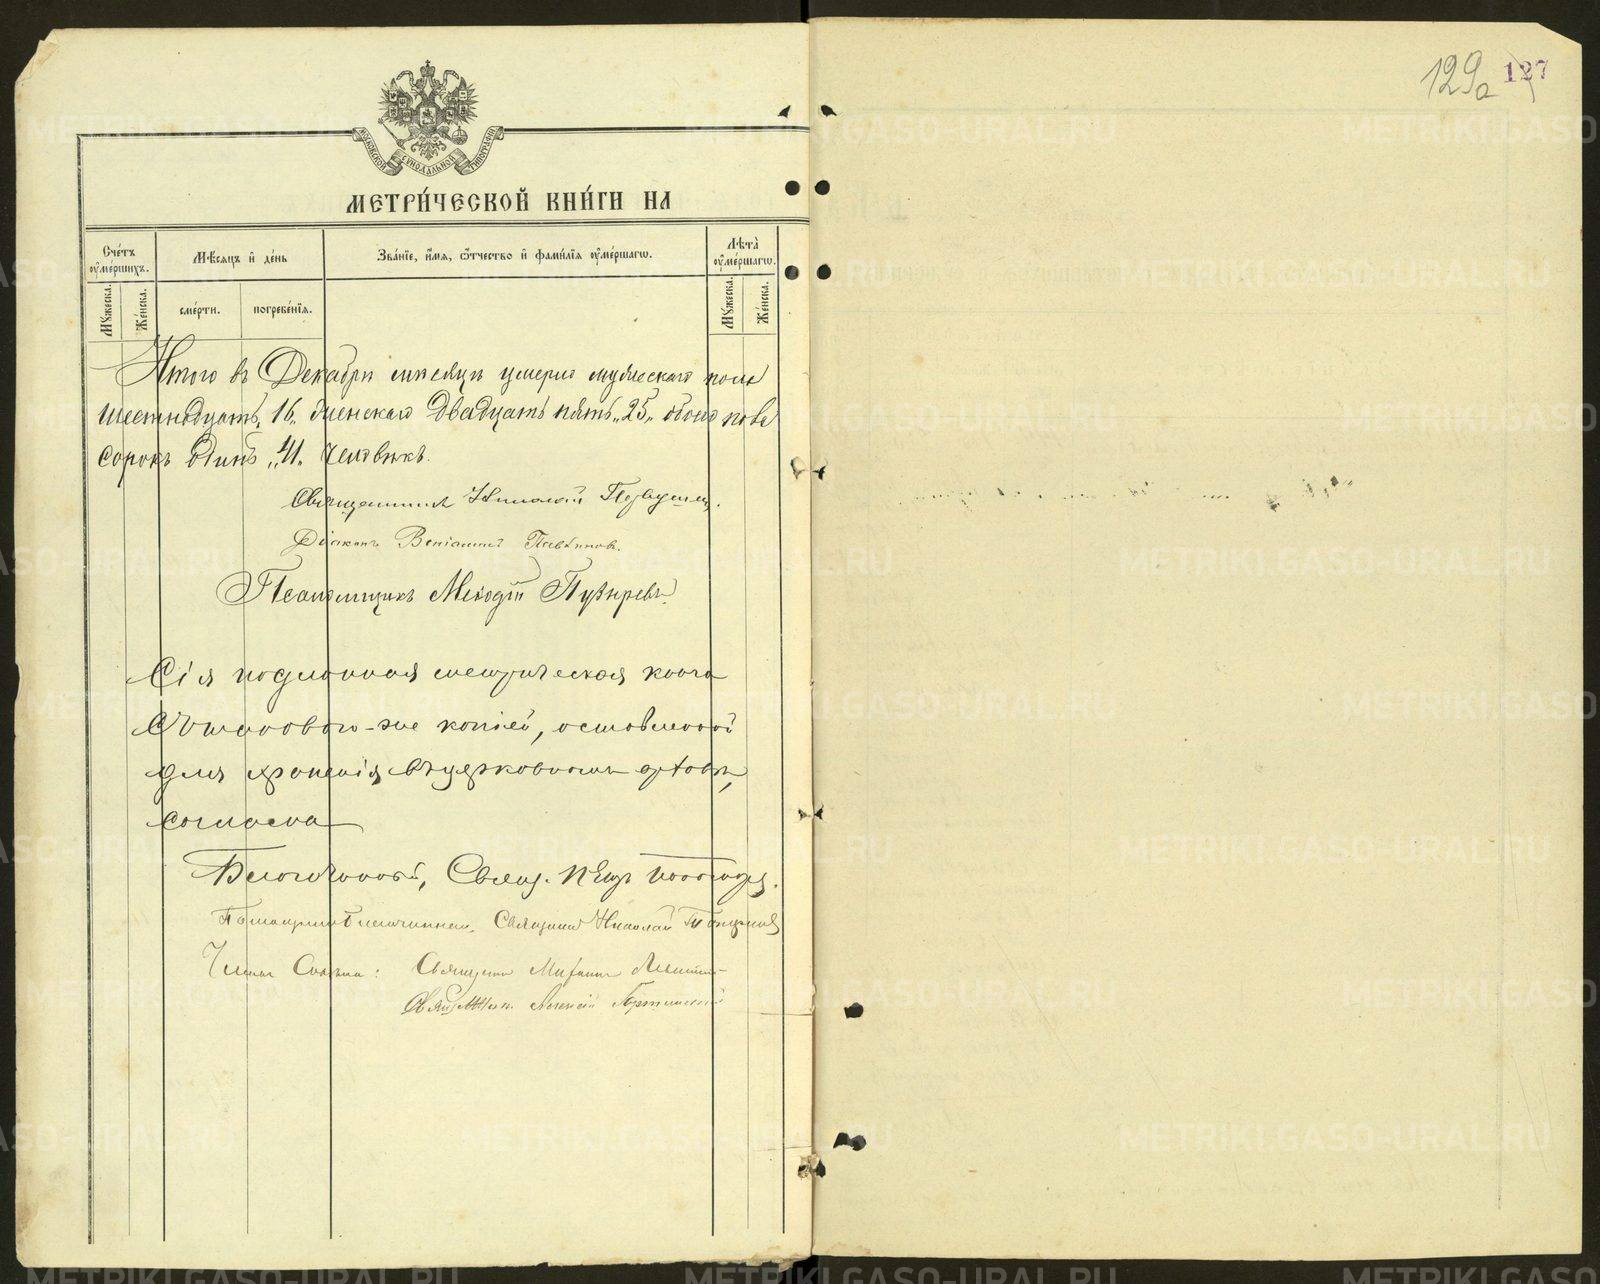 129а 127
МОСКОВСКОЙ СѴНОДАЛЬНОЙ ТИПОГРАФІИ
МЕТРИ́ЧЕСКОЙ КНИ́ГИ НА
Сче́тъ оумершихъ.
Мѣсяцъ и де́нь
Зва́нїе, и́мя, ѻ҆́тчество и фами́лїя оуме́ршагѡ.
Лѣта̀ оуме́ршагѡ.
Мꙋ́жеска.
Же́нска.
сме́рти.
погребе́нїя.
Мꙋ́жеска.
Же́нска.
Итого въ Декабрѣ мѣсяцѣ умерло мужескаго пола
шестнадцать „16„ женскаго двадцать пять „25„ обоего пола
сорокъ одинъ „41„ человѣкъ.
Священникъ Николай
Діаконъ Веніаминъ
Псаломщикъ Меѳодій Пузыревъ.
Сія подлинная метрическая книга
съ таковою-же копіей, оставленной
для храненія въ церковномъ архивѣ,
согласна
Благочинный, Свящ.
Помощникъ благочиннаго, Священникъ Николай
Члены Совѣта: Священникъ Михаилъ
Священ. Алексій
METRIKI.GASO-URAL.RU